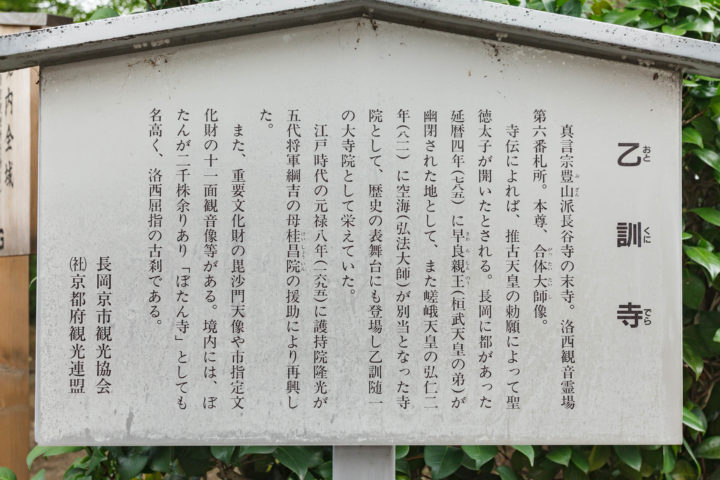 乙訓寺
おとくにでら
真言宗豊山派長谷寺の末寺。洛西観音霊場
第六番札所。本尊、合体大師像。
寺伝によれば、推古天皇の勅願によって聖
徳太子が開いたとされる。長岡に都があった
延暦四年(七八五)に早良親王(桓武天皇の弟)が
幽閉された地として、また嵯峨天皇の弘仁二
年(八一一)に空海(弘法大師)が別当となった寺
院として、歴史の表舞台にも登場し乙訓随一
の大寺院として栄えていた。
江戸時代の元禄八年(一六九五)に護持院隆光が
五代将軍綱吉の母桂昌院の援助により再興し
た。
また、重要文化財の毘沙門天像や市指定文
化財の十一面観音像等がある。境内には、ぼ
たんが二千株余りあり「ぼたん寺」としても
名高く、洛西屈指の古刹である。
長岡京市観光協会
(社)京都府観光連盟
内全域